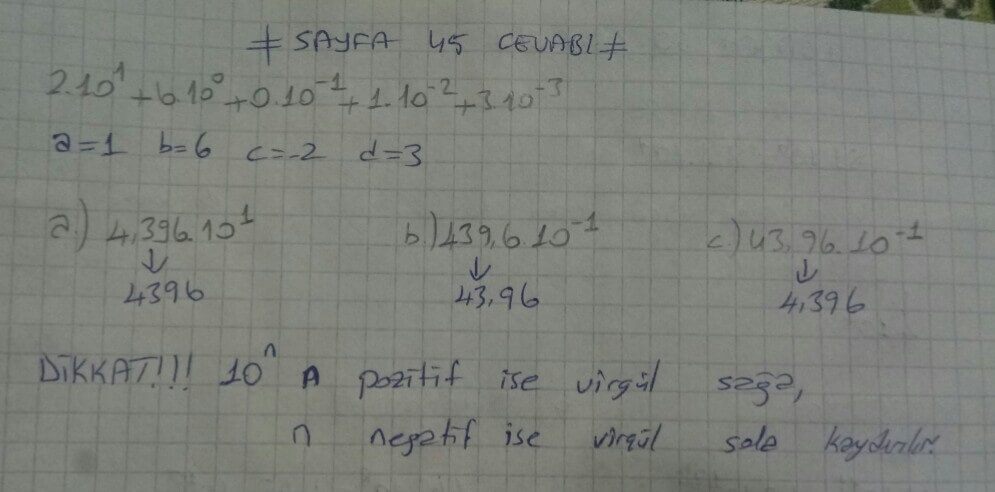 ≠ SAYFA 45 CEVABI ≠
2.10¹+6.10⁰+0.10⁻¹+1.10⁻²+3.10⁻³
a=1 b=6 c=-2 d=3
a.) 4,396.10¹ b.) 439,6.10⁻¹ c.) 43,96.10⁻¹
↓ ↓ ↓
4396 43,96 4,396
DİKKAT!!! 10ⁿ n pozitif ise virgül sağa,
n negatif ise virgül sola kaydırılır.